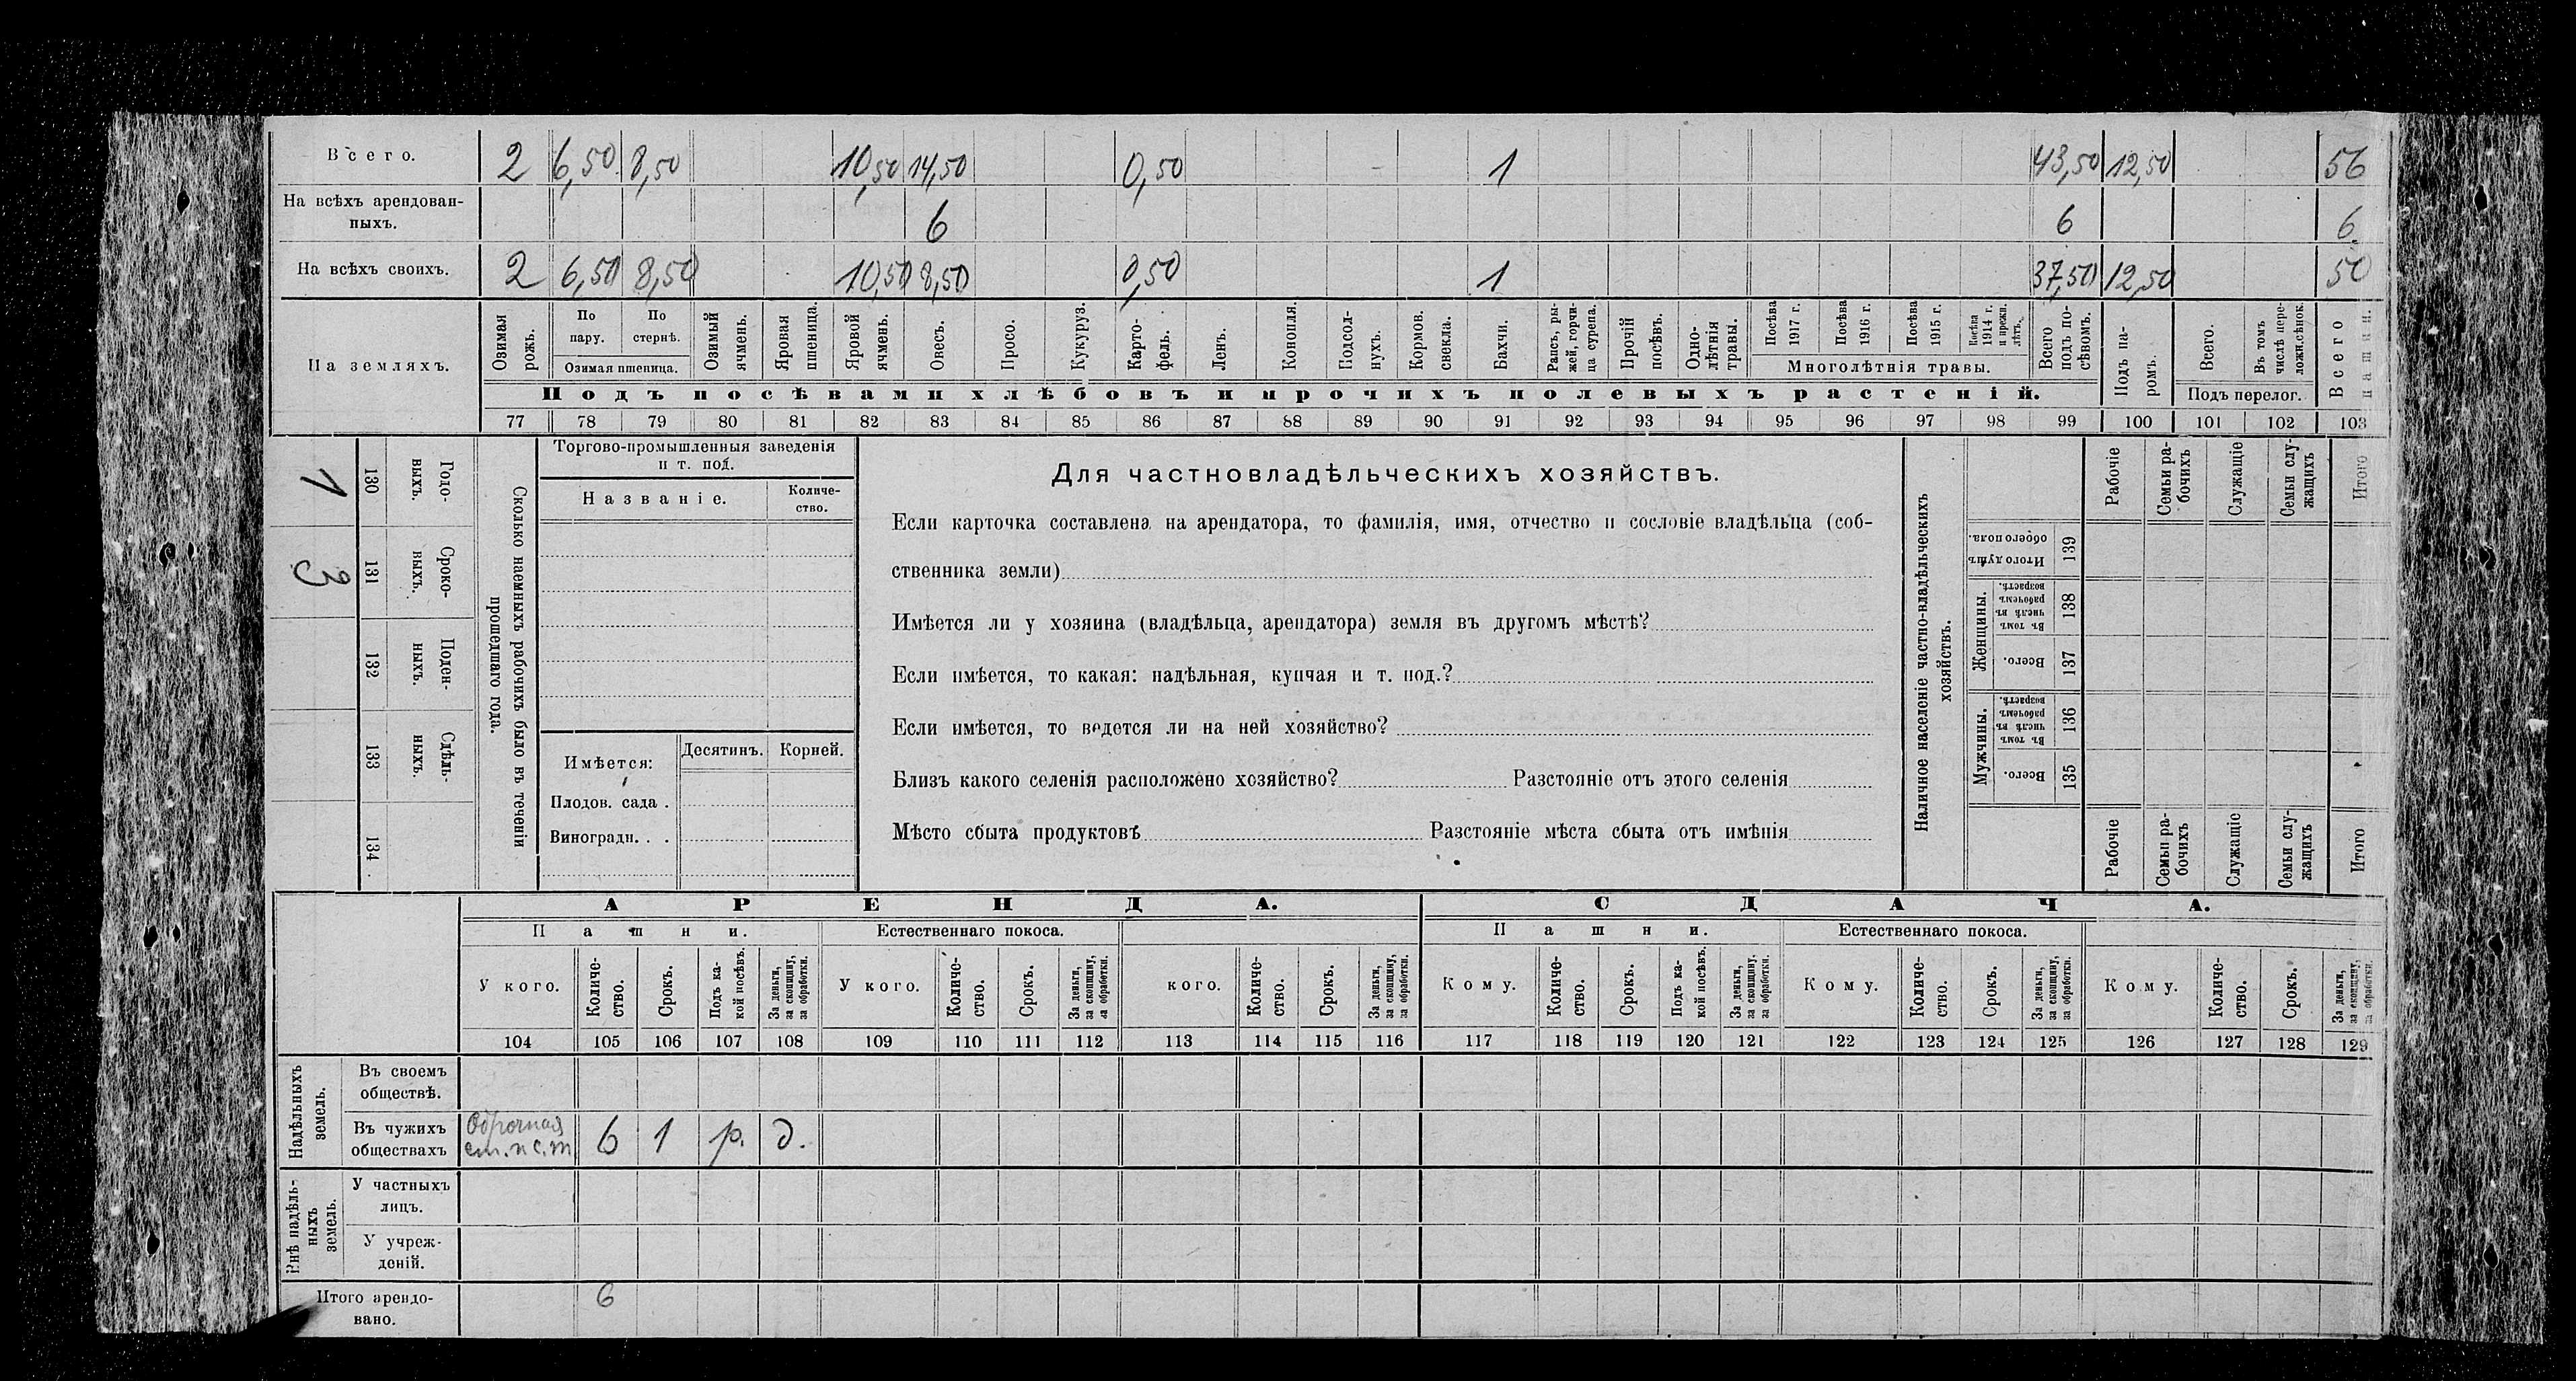 Всего. 2 6,50 8,50 10,50 14,50 0,50 1 43,50 12,50 56
На всѣхъ арендован-
ныхъ. 6 6 6
На всѣхъ своихъ. 2 6,50 8,50 10,50 8,50 0,50 1 37,50 12,50 50
На земляхъ.
Озимая рожь.
По пару.
По стернѣ.
Озимая пшеница.
Озимый ячмень.
Яровая пшеница.
Яровой ячмень.
Овесъ.
Просо.
Кукуруз.
Карто-
фель.
Ленъ.
Конопля.
Подсол-
нухъ.
Кормов. свекла.
Бахчи.
Рапсъ, ры-
жей, горчи-
ца сурепа.
Прочій посѣвъ.
Одно-
лѣтнія травы.
Посѣва 1917 г.
Посѣва 1916 г.
Посѣва 1915 г.
Посѣва 1914 г. и прежн. лѣтъ.
Многолѣтнія травы.
Всего подъ по-
сѣвомъ.
Подъ па-
ромъ.
Всего.
Въ томъ числѣ пере-
ложн.сѣнок.
Подъ перелог.
Всего пашни.
Подъ посѣвами хлѣбовъ и прочихъ полевыхъ растеній.
77 78 79 80 81 82 83 84 85 86 87 88 89 90 91 92 93 94 95 96 97 98 99 100 101 102 103
Сколько наемныхъ рабочихъ было въ теченіи
прошедшаго года.
Годо-
выхъ. 130 1
Сроко-
выхъ. 131 3
Поден-
ныхъ. 132
Сдѣль-
ныхъ. 133
134
Торгово-промышленныя заведенія
и т. под.
Названіе.
Количе-
ство.
Имѣется:
Десятинъ. Корней.
Плодов. сада .
Виноградн. . .
Для частновладѣльческихъ хозяйствъ.
Если карточка составлена на арендатора, то фамилія, имя, отчество и сословіе владѣльца (соб-
ственника земли)
Имѣется ли у хозяина (владѣльца, арендатора) земля въ другомъ мѣстѣ?
Если имѣется, то какая: надѣльная, купчая и т. под.?
Если имѣется, то ведется ли на ней хозяйство?
Близъ какого селенія расположено хозяйство? Разстояніе отъ этого селенія
Мѣсто сбыта продуктовъ Разстояніе мѣста сбыта отъ имѣнія
Наличное населеніе частно-владѣльческихъ
хозяйствъ.
Рабочіе
Семьи ра-
бочихъ
Служащіе
Семьи слу-
жащихъ
Итого
Итого душъ обоего пола. 139
Женщины.
Въ томъ числѣ въ рабочемъ возрастѣ. 138
Всего. 137
Мужчины.
Въ томъ числѣ въ рабочемъ возрастѣ. 136
Всего. 135
Рабочіе
Семьи ра-
бочихъ
Служащіе
Семьи слу-
жащихъ
Итого
АРЕНДА. СДАЧА.
Пашни. Естественнаго покоса. Пашни. Естественнаго покоса.
У кого.
Количе-
ство.
Срокъ.
Подъ ка-
кой посѣвъ.
За деньги,
за скопщину,
за обработки.
У кого.
Количе-
ство.
Срокъ.
За деньги,
за скопщину,
за обработки.
кого.
Количе-
ство.
Срокъ.
За деньги,
за скопщину,
за обработки.
Кому.
Количе-
ство.
Срокъ.
Подъ ка-
кой посѣвъ.
За деньги,
за скопщину,
за обработки.
Кому.
Количе-
ство.
Срокъ.
За деньги,
за скопщину,
за обработки.
Кому.
Количе-
ство.
Срокъ.
За деньги,
за скопщину,
за обработки.
104 105 106 107 108 109 110 111 112 113 114 115 116 117 118 119 120 121 122 123 124 125 126 127 128 129
Надѣльныхъ
земель.
Въ своемъ
обществѣ.
Въ чужихъ
обществахъ
Оброчная
6 1 р. д.
Внѣ надѣль-
ныхъ
земель.
У частныхъ
лицъ.
У учреж-
деній.
Итого арендо-
вано. 6